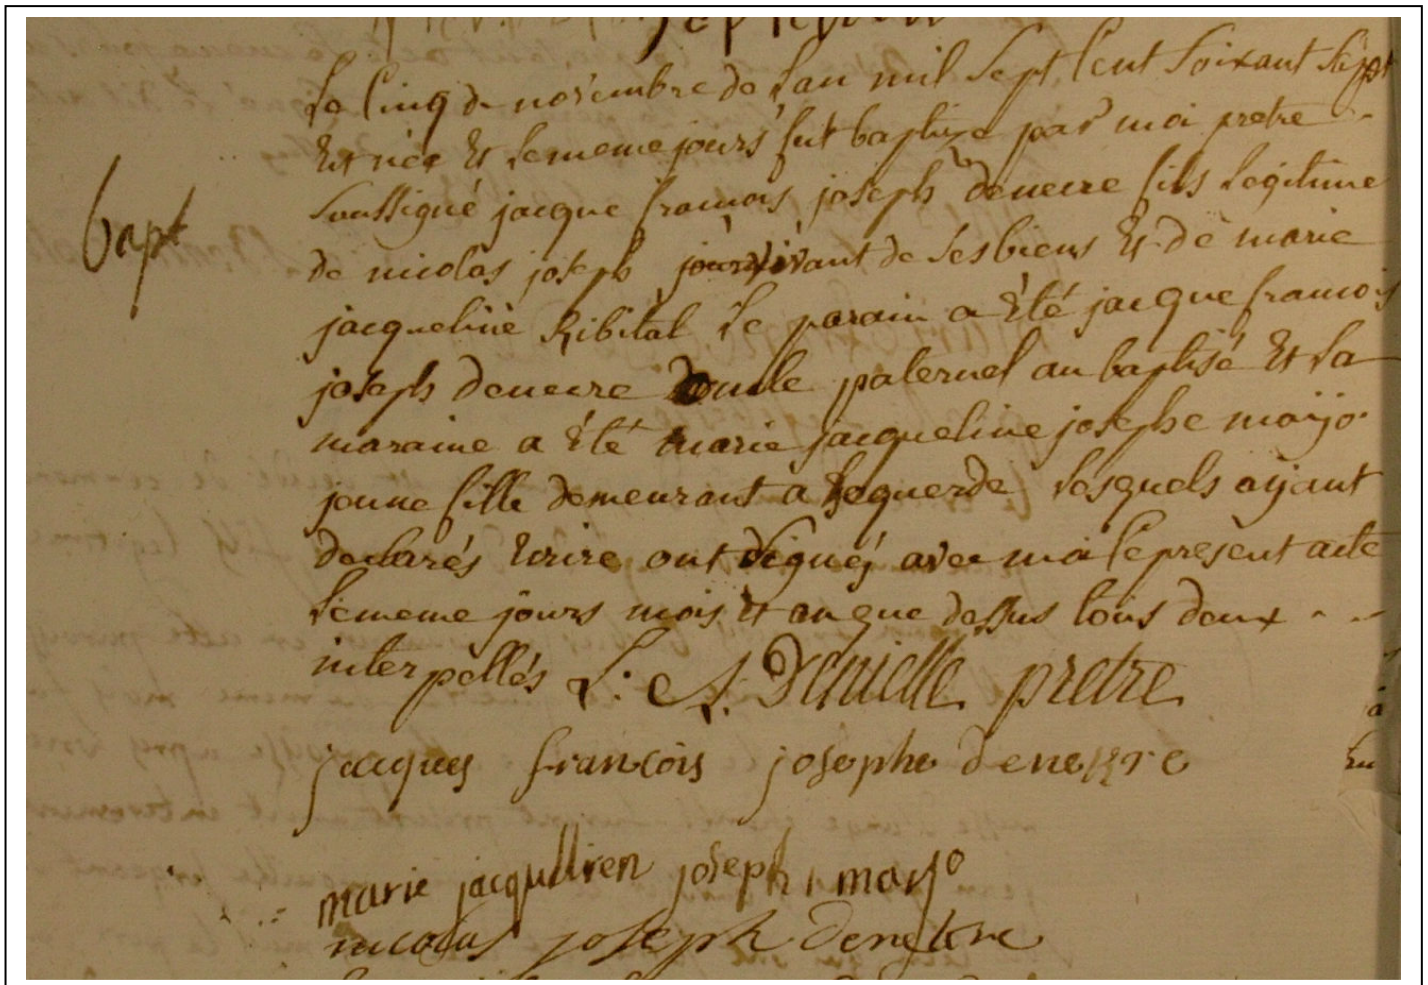 septembre
Le cinq de novembre de l'an mil sept cent soixant sept
bapt
Est née Et le meme jours fut baptize par moi pretre
soussigné jacque francois joseph deneure fils legitime
de nicolas joseph vivant de ses biens Et de marie
jacqueline Ribital le parain a Eté jacque francois
joseph deneure oncle paternel au baptisé Et la
maraine a Eté marie jacqueline josephe mayo
jeune fille demeurant a lequerde lesquels aÿant
declarés Ecrire ont signés avec moi le present acte
le meme jours mois et an que dessus tous deux
interpellés L: A. Denielle pretre
jacques francois josephe
marie joseph mayo
nicolas joseph